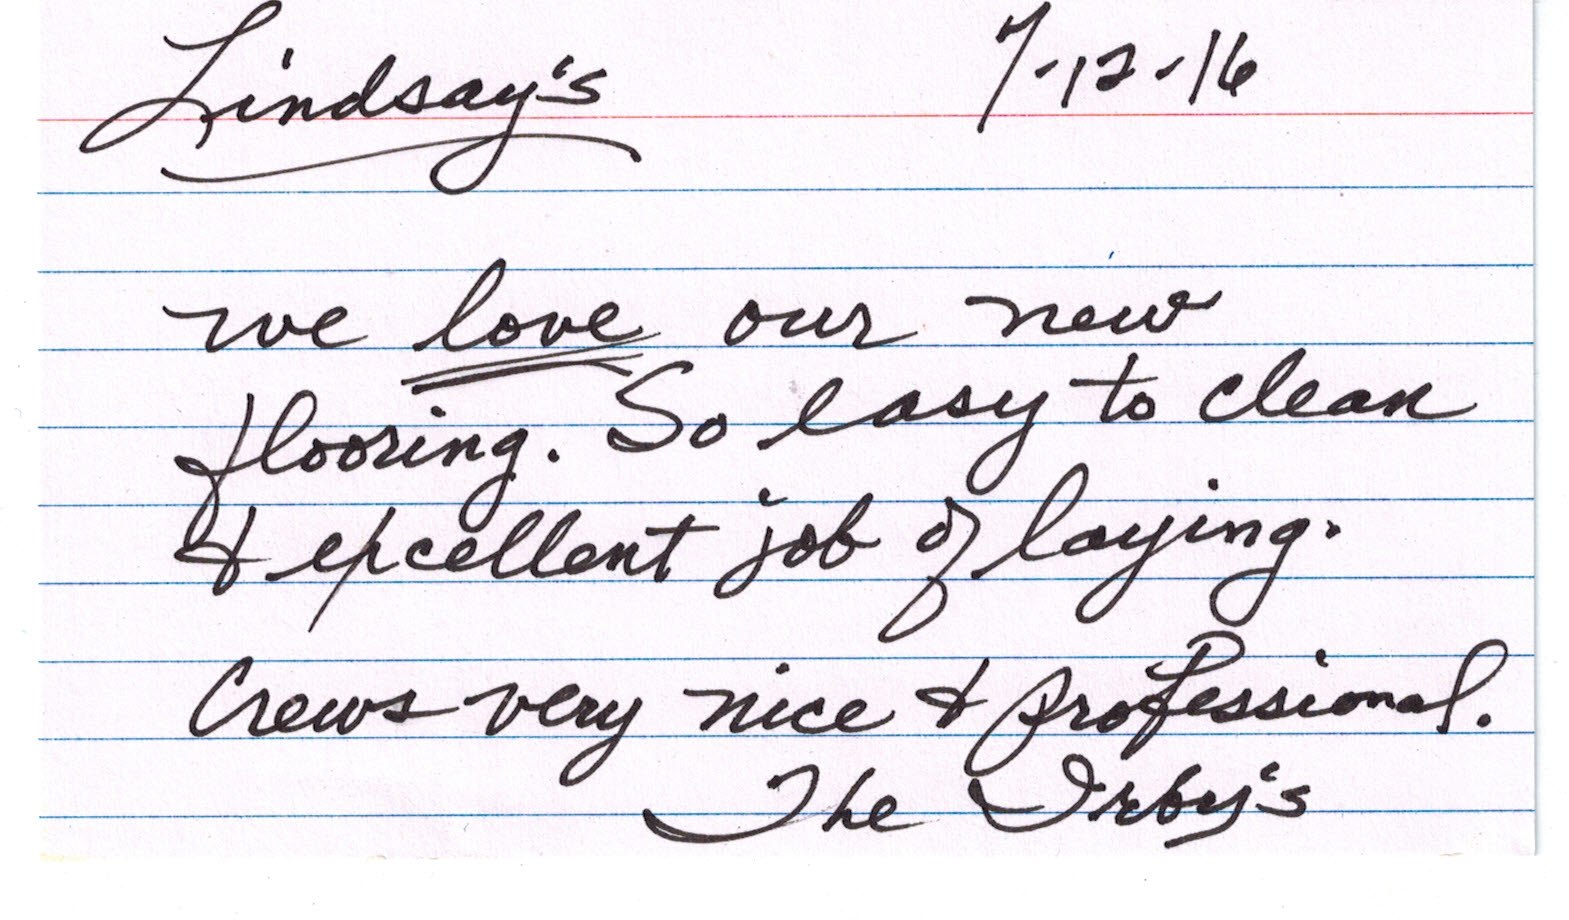 Lindsay's 7-12-16
we love our new
flooring. So easy to clean
& excellent job of laying.
Crews very nice & professional.
The Irby's